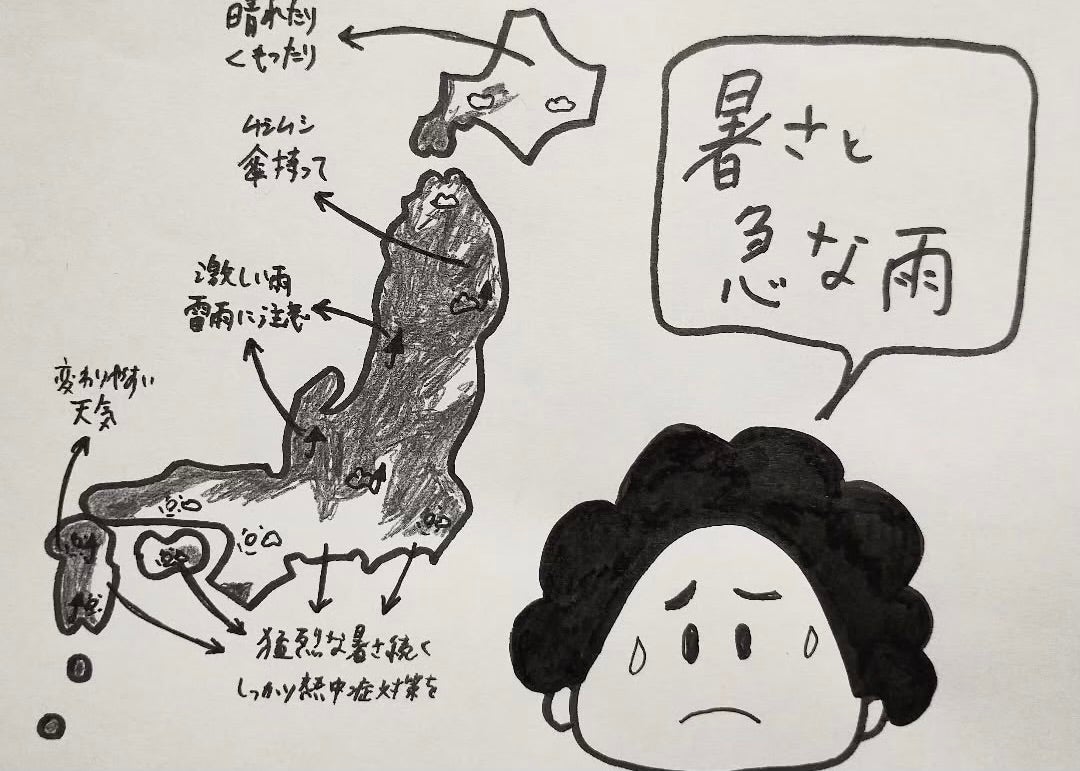 晴れたり
くもったり
ムシムシ
傘持って
激しい雨
雷雨に注意
変わりやすい
天気
猛烈な暑さ続く
しっかり熱中症対策を
暑さと
急な雨